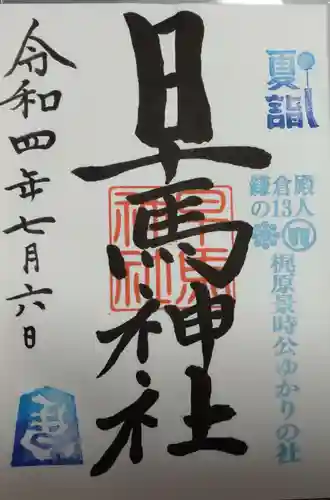 夏詣
鎌倉殿の13人
梶原景時公ゆかりの社
早馬神社
早馬神社
令和四年七月六日